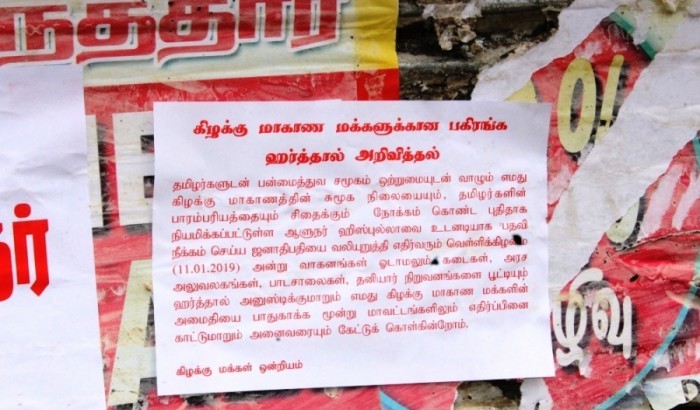 ருத்தார்
கிழக்கு மாகாண மக்களுக்கான பகிரங்க
ஹர்த்தால் அறிவித்தல்
தமிழர்களுடன் பன்மைத்துவ சமூகம் ஒற்றுமையுடன் வாழும் எமது
கிழக்கு மாகாணத்தின் சுமூக நிலையையும், தமிழர்களின்
பாரம்பரியத்தையும் சிதைக்கும் நோக்கம் கொண்ட புதிதாக
நியமிக்கப்பட்டுள்ள ஆளுநர் ஹிஸ்புல்லாவை உடனடியாக பதவி
நீக்கம் செய்ய ஜனாதிபதியை வலியுறுத்தி எதிர்வரும் வெள்ளிக்கிழமை
(11.01.2019) அன்று வாகனங்கள் ஓடாமலும் கடைகள், அரச
அலுவலகங்கள், பாடசாலைகள், தனியார் நிறுவனங்களை பூட்டியும்
ஹர்த்தால் அனுஸ்டிக்குமாறும் எமது கிழக்கு மாகாண மக்களின்
அமைதியை பாதுகாக்க மூன்று மாவட்டங்களிலும் எதிர்ப்பினை
காட்டுமாறும் அனைவரையும் கேட்டுக் கொள்கின்றோம்.
கிழக்கு மக்கள் ஒன்றியம்